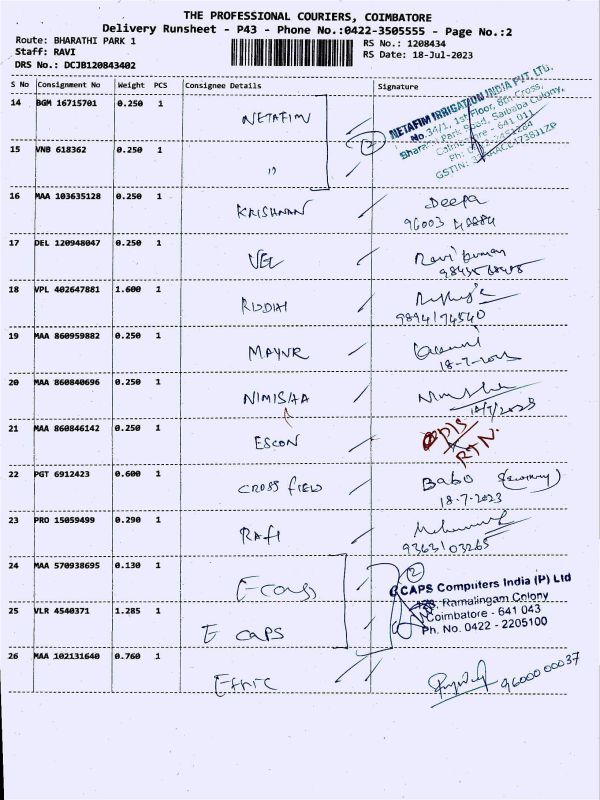 THE PROFESSIONAL COURIERS, COIMBATORE
Delivery Runsheet - P43 - Phone No.:0422-3505555 - Page No.:2
Route: BHARATHI PARK 1
RS No.: 1208434
Staff: RAVI
RS Date: 18-Jul-2023
DRS No.: DCJB120843402
S No Consignment No Weight PCS Consignee Details Signature
14 BGM 16715701 0.250 1 NETAFIM
NETAFIM IRRIGATION INDIA PVT. LTD.
No.34/1, 1st Floor, 8th Cross,
Bharathi Park Road, Saibaba Colony,
Coimbatore - 641 011
2
15 VNB 618362 0.250 1 "
16 MAA 103635128 0.250 1 KRISHNAN Deepa
96003
17 DEL 120948047 0.250 1 VEL Ravi kumar
18 VPL 402647881 1.600 1 RIDDHI
9894174540
19 MAA 860959882 0.250 1 MAYUR
18-7-2023
20 MAA 860840696 0.250 1 NIMISHA
18/7/2023
21 MAA 860846142 0.250 1 ESCON D/S
RTN.
22 PGT 6912423 0.600 1 CROSS FIELD Babo (Security)
18.7.2023
23 PRO 15059499 0.290 1 RAFI
9363103265
24 MAA 570938695 0.130 1 E-caps 2
CAPS Computers India (P) Ltd
Ramalingam Colony
Coimbatore - 641 043
Ph. No. 0422 - 2205100
25 VLR 4540371 1.285 1 E CAPS
26 MAA 102131640 0.760 1
9600000037